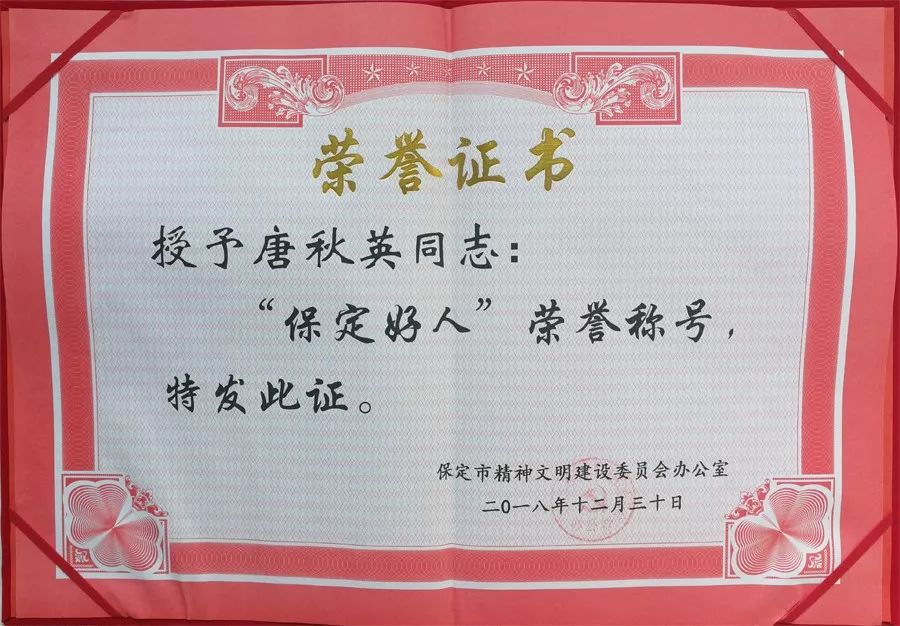 荣誉证书
授予唐秋英同志：
“保定好人”荣誉称号，
特发此证。
保定市精神文明建设委员会办公室
二〇一八年十二月三十日